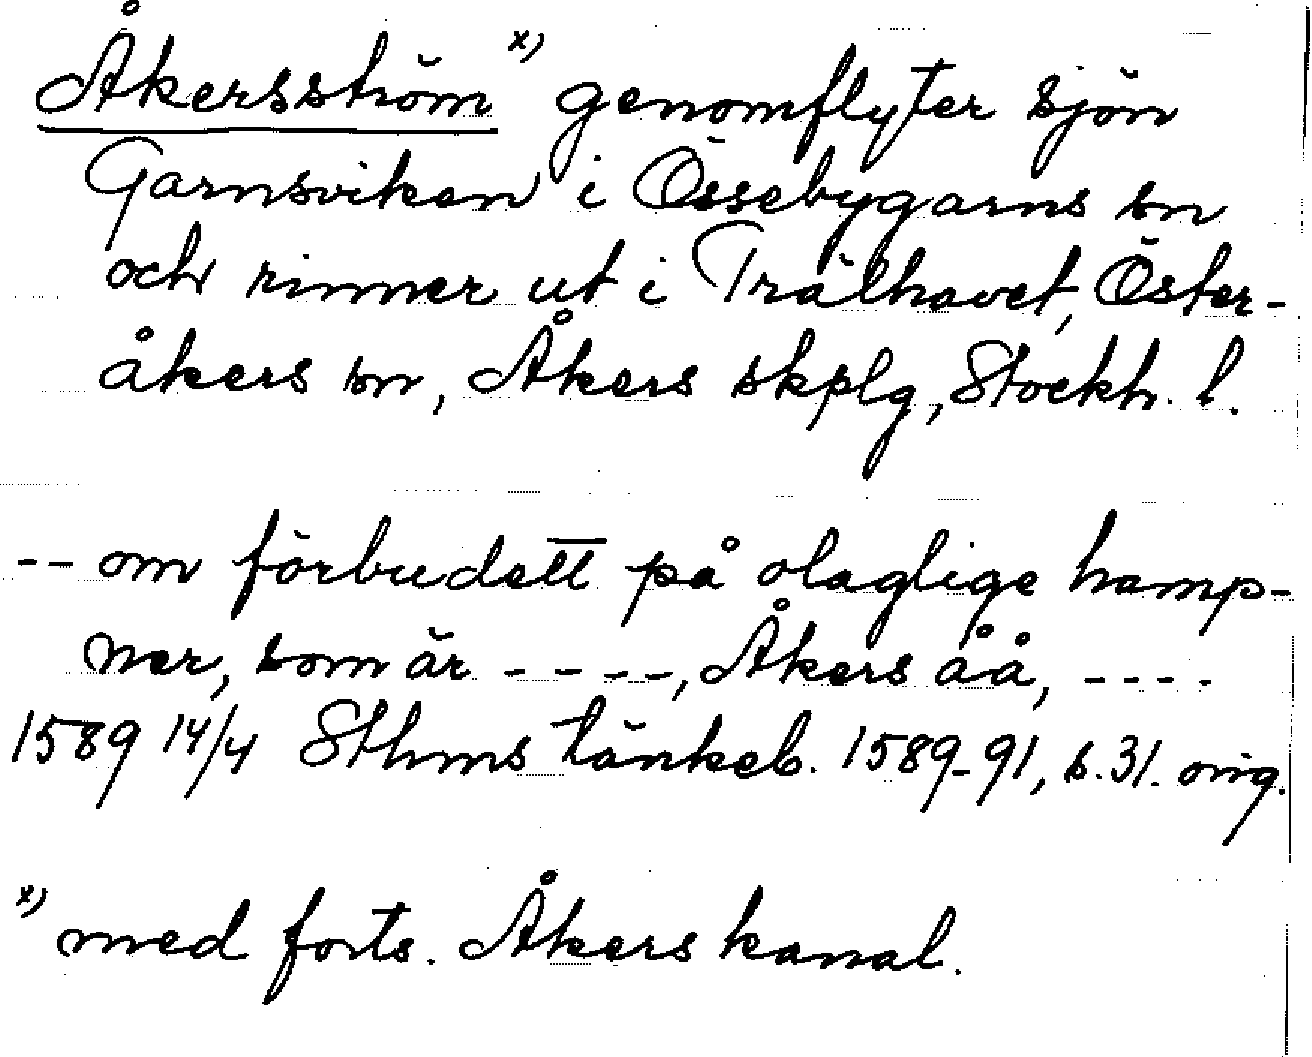 Åkersström x) genomflyter sjön
Garnsviken i Össebygarns sn
och rinner ut i Trälhavet, Öster-
åkers sn, Åkers skplg, Stockh. l.
-- om förbudett på olaglige hamp-
ner, som är ----, Åkers åå, ----
1589 14/4 Sthms tänkeb. 1589-91, s. 31. orig.
x) med forts. Åkers kanal.